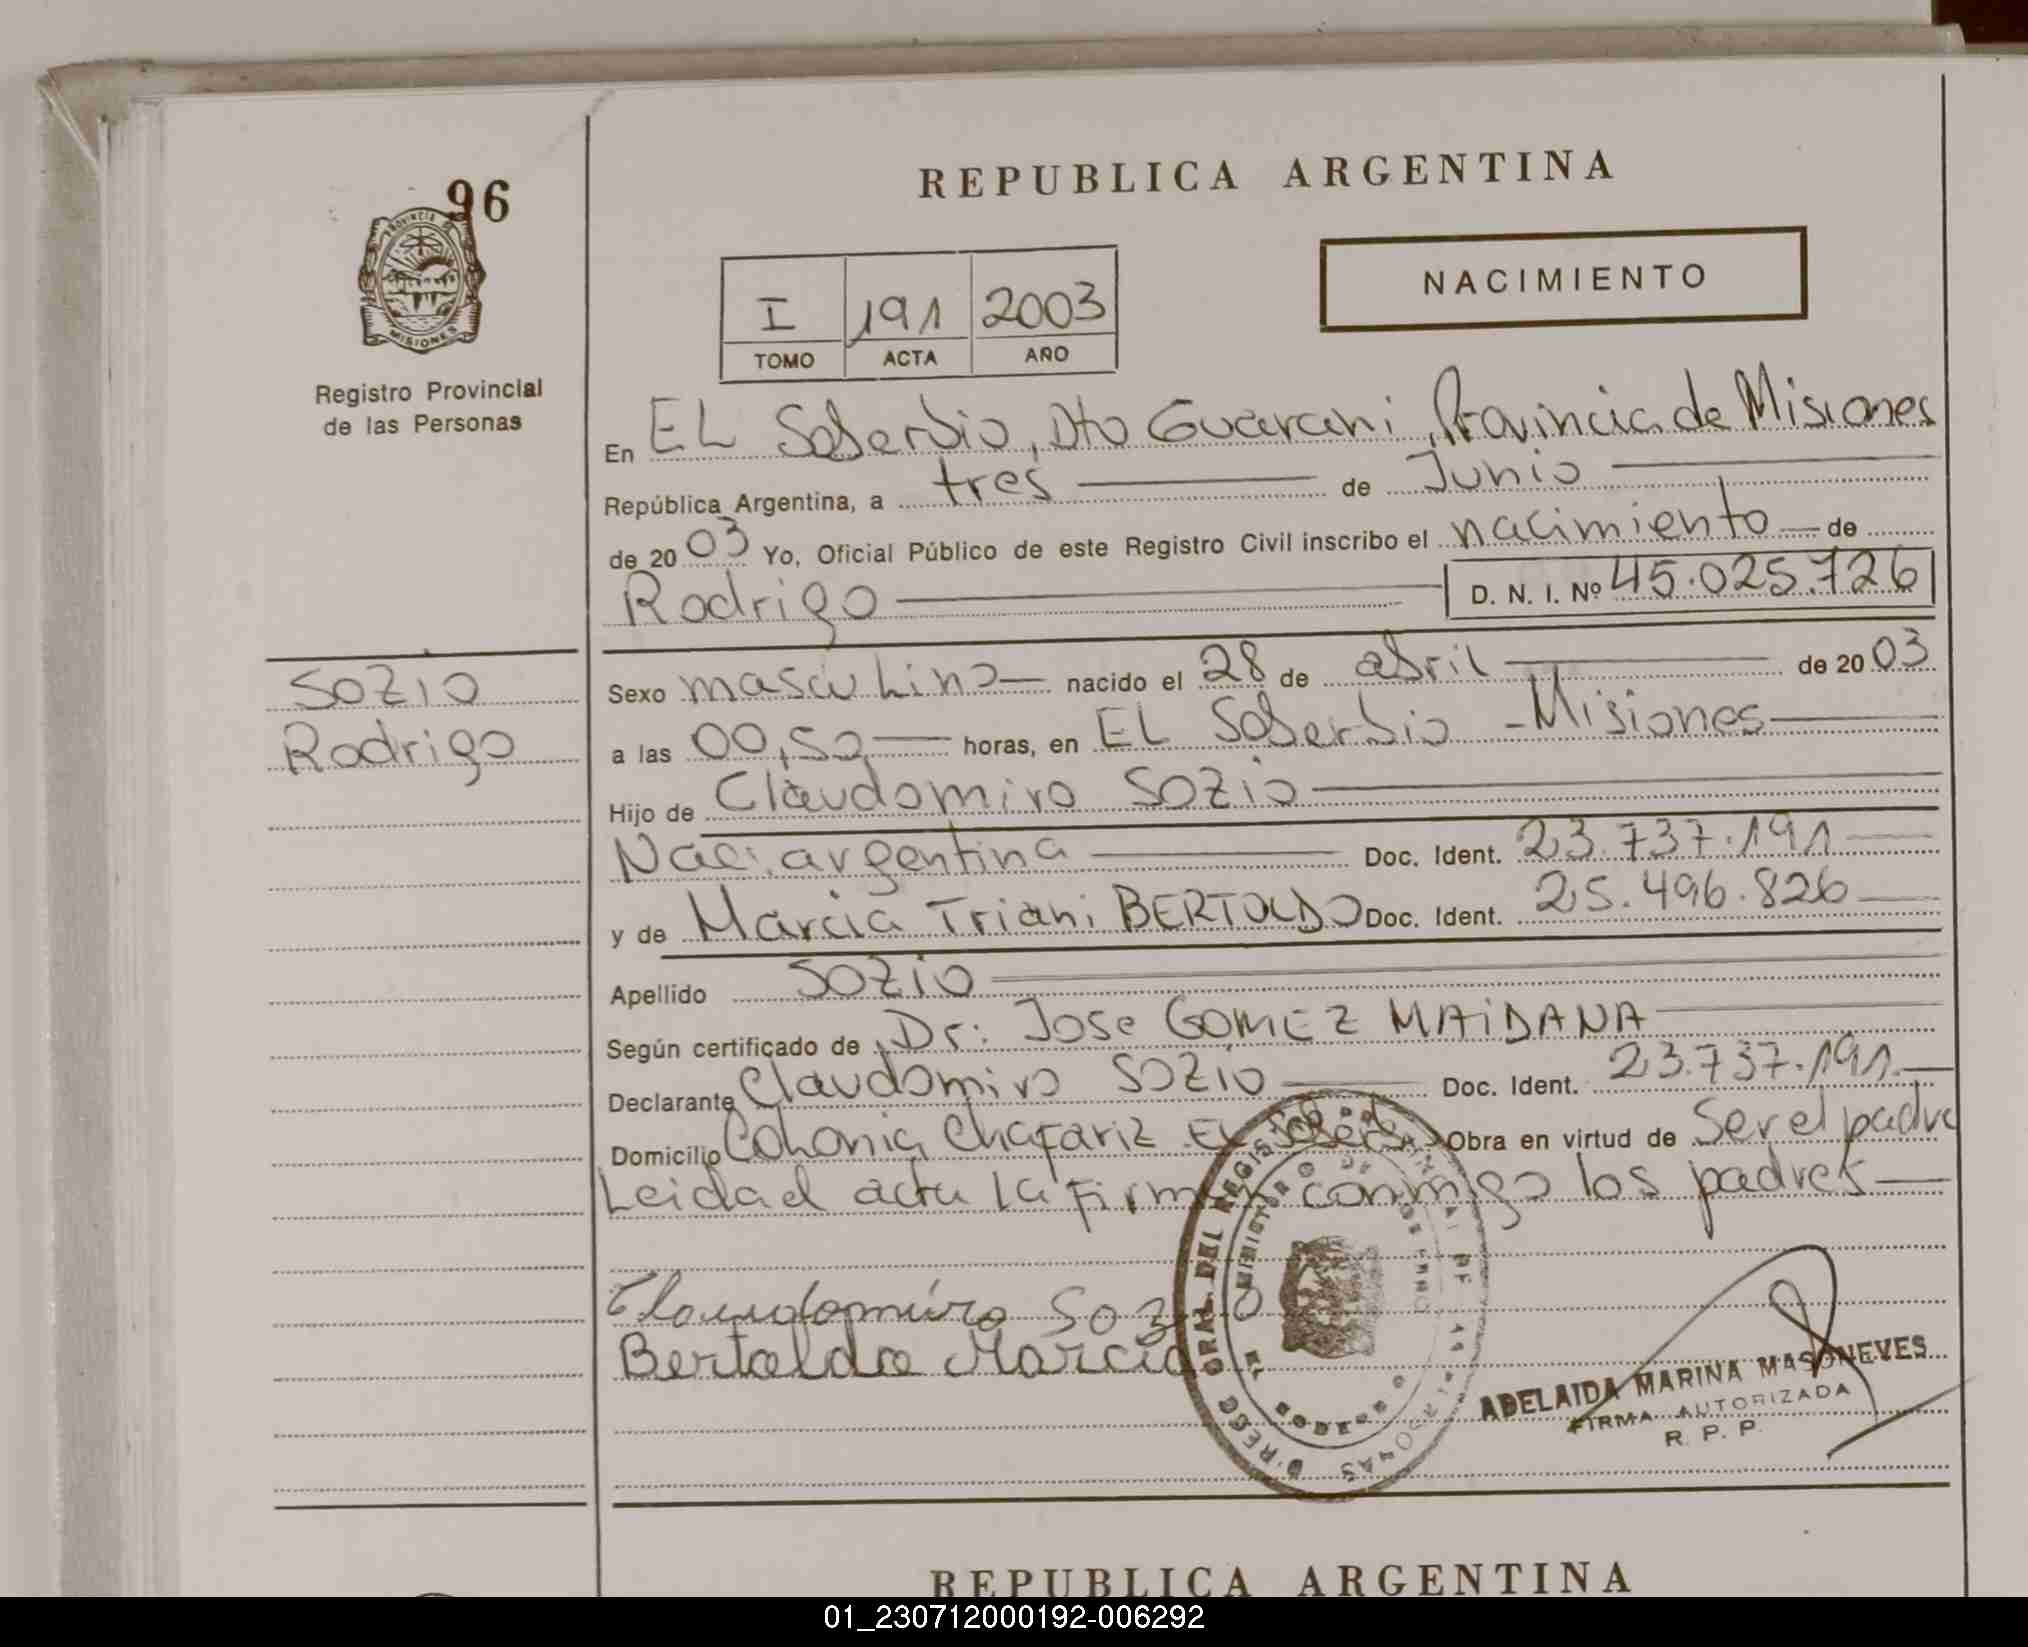 96
PROVINCIA DE
MISIONES
Registro Provincial
de las Personas
SOZIO
Rodrigo
REPUBLICA ARGENTINA
NACIMIENTO
I 191 2003
TOMO ACTA AÑO
En EL Soberbio, Dto Guarani, Provincia de Misiones
República Argentina, a tres de Junio
de 2003 Yo, Oficial Público de este Registro Civil inscribo el nacimiento de
Rodrigo D. N. I. Nº 45.025.726
Sexo masculino nacido el 28 de abril de 2003
a las 00,50 horas, en EL Soberbio - Misiones
Hijo de Claudomiro SOZIO
Nac. argentina Doc. Ident. 23.737.191
y de Marcia Triani BERTOLDO Doc. Ident. 25.496.826
Apellido SOZIO
Según certificado de Dr. Jose GOMEZ MAIDANA
Declarante Claudomiro SOZIO Doc. Ident. 23.737.191
Domicilio Colonia Chafariz EL Soberbio Obra en virtud de Ser el padre
Leida el acta la firman conmigo los padres
Claudomiro Sozio
Bertoldo Marcia
ADELAIDA MARINA MASONEVES
FIRMA AUTORIZADA
R. P. P.
REPUBLICA ARGENTINA
01_230712000192-006292